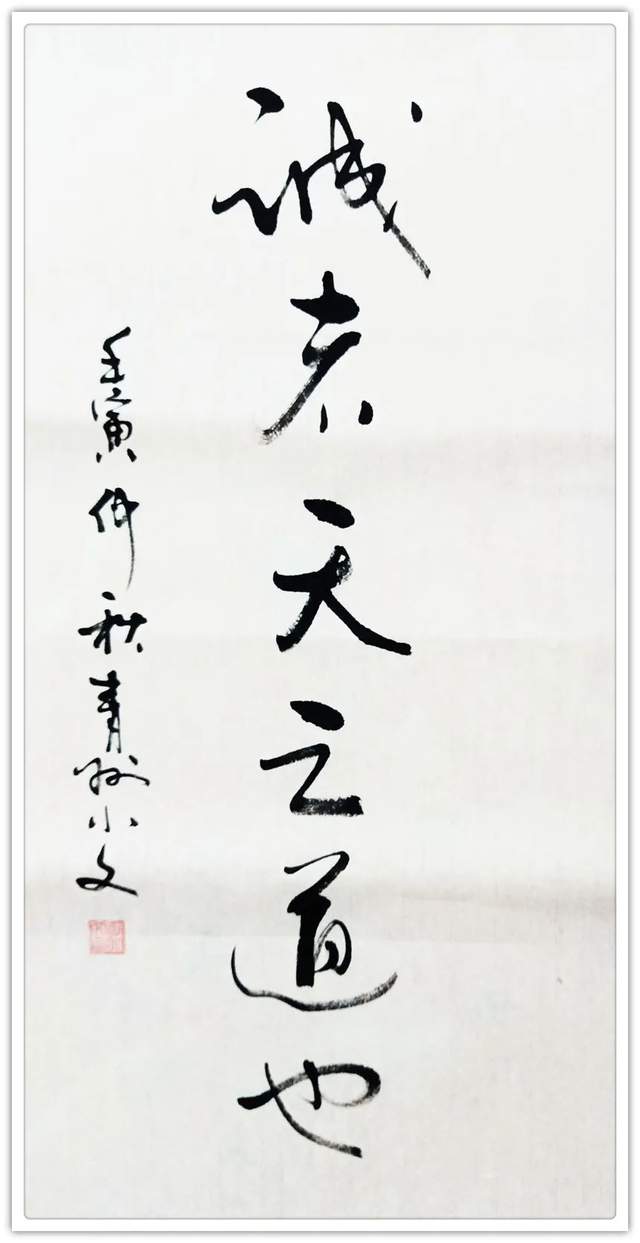 诚者天之道也
壬寅仲秋青山小文